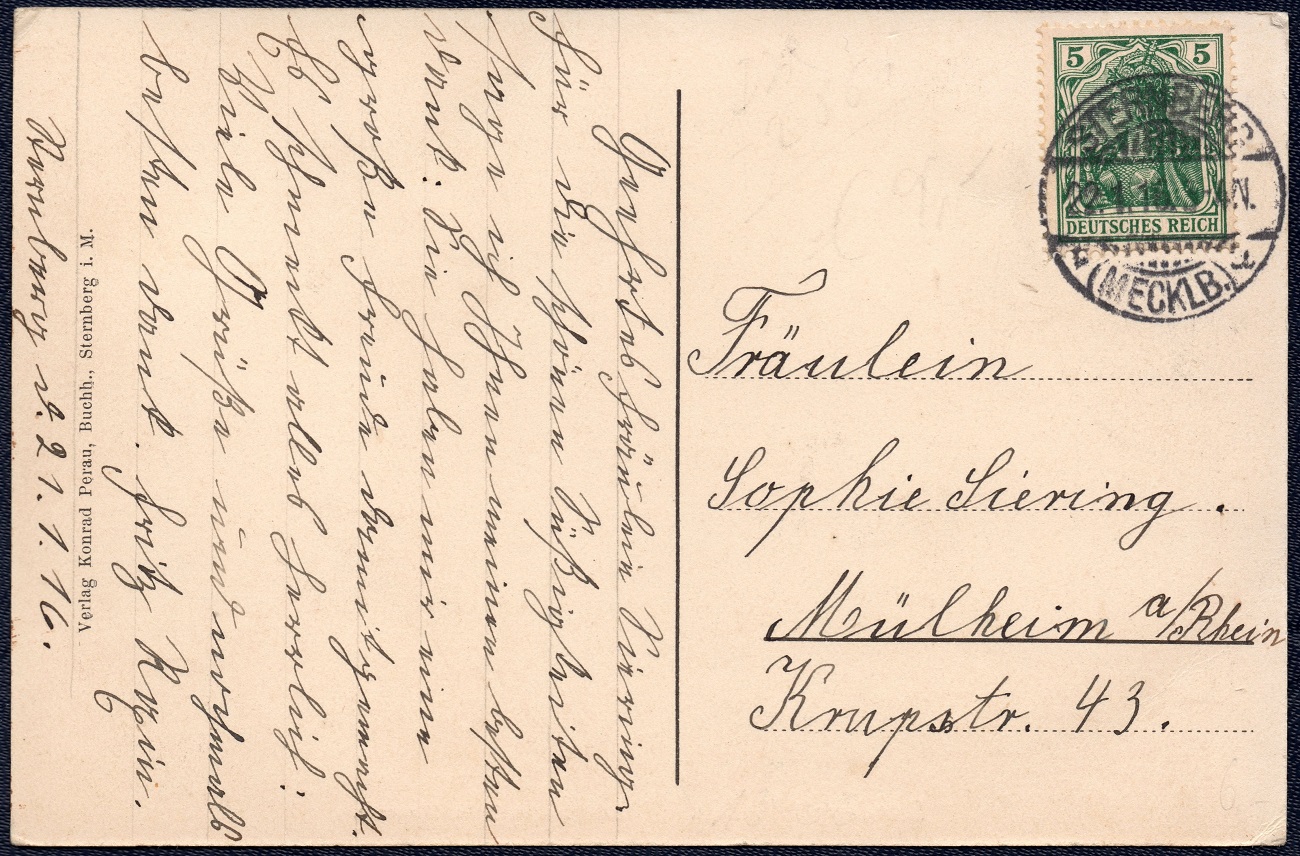 Geehrtes Fräulein Siering.
Für die schönen Süßigkeiten
sage ich Ihnen meinen besten
Dank. Sie haben mir eine
große Freude damit gemacht.
Es schmeckt alles herrlich!
Viele Grüße und nochmals
besten Dank. Fritz
d. 21.1.16.
Verlag Konrad Perau, Buchh., Sternberg i. M.
5 5
DEUTSCHES REICH
STERNBERG
22.1.16.
(MECKLB.)
Fräulein
Sophie Siering.
Mülheim a/Rhein
Krupstr. 43.